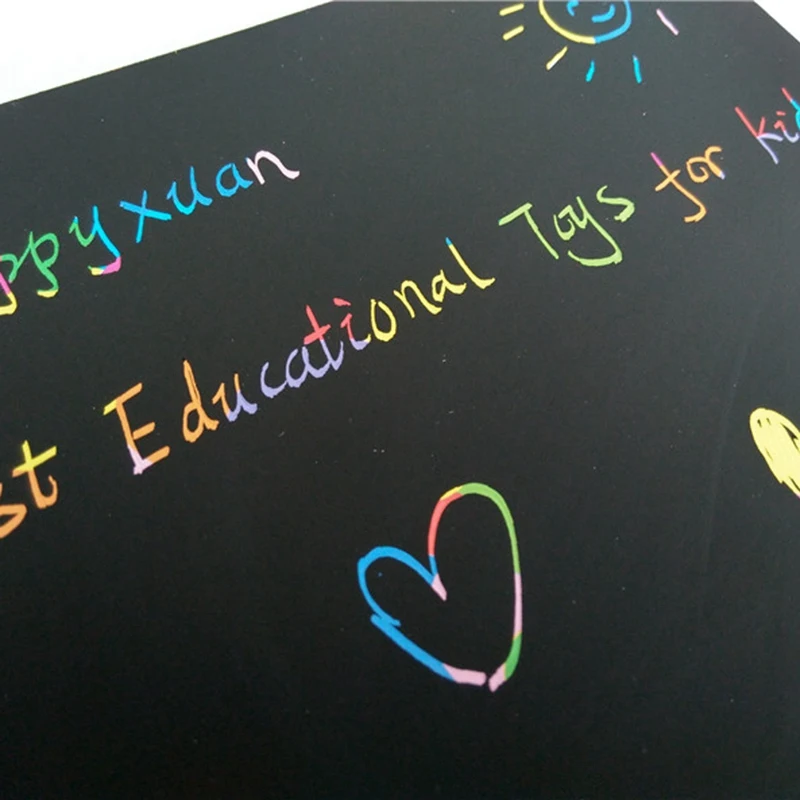 ppyxuan
st Educational Toys for kid